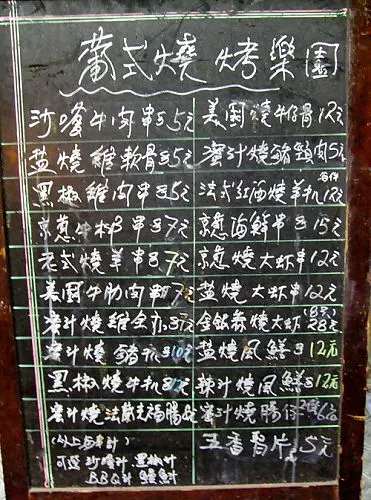 蕭式燒烤樂園
沙嗲牛肉串每5元
美國燒牛仔骨12元
鹽燒雞軟骨每5元
蜜汁燒豬頸肉5元
黑椒雞肉串每5元
法式紅酒燒羊扒12元
京蔥牛柳串每7元
京蔥海鮮串每15元
老式燒羊串每7元
京蔥燒大虾串12元
美國牛肋肉 7元
鹽燒大虾串12元
蜜汁燒雞全亦每7元
金銀蒜燒大虾 28元
蜜汁燒豬扒每10元
鹽燒風鱔每12元
黑椒燒牛扒每12元
辣汁燒風鱔每12元
蜜汁燒法蘭克福腸
蜜汁燒腸仔2條
五香腎片 5元
可選 沙嗲汁 黑椒汁
BBQ汁 鰻魚汁